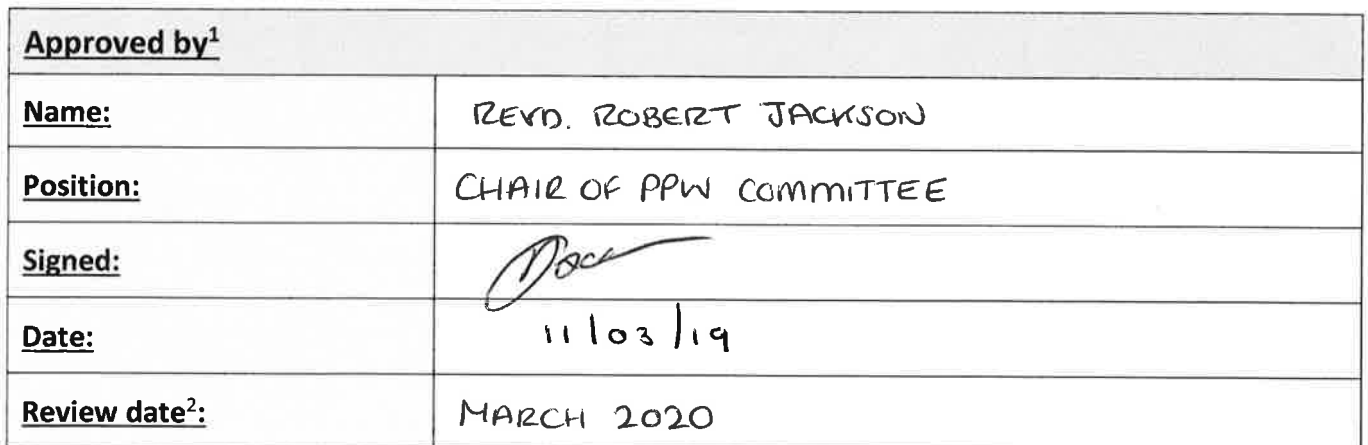 Approved by¹
Name: REVD. ROBERT JACKSON
Position: CHAIR OF PPW COMMITTEE
Signed:
Date: 11/03/19
Review date²: MARCH 2020